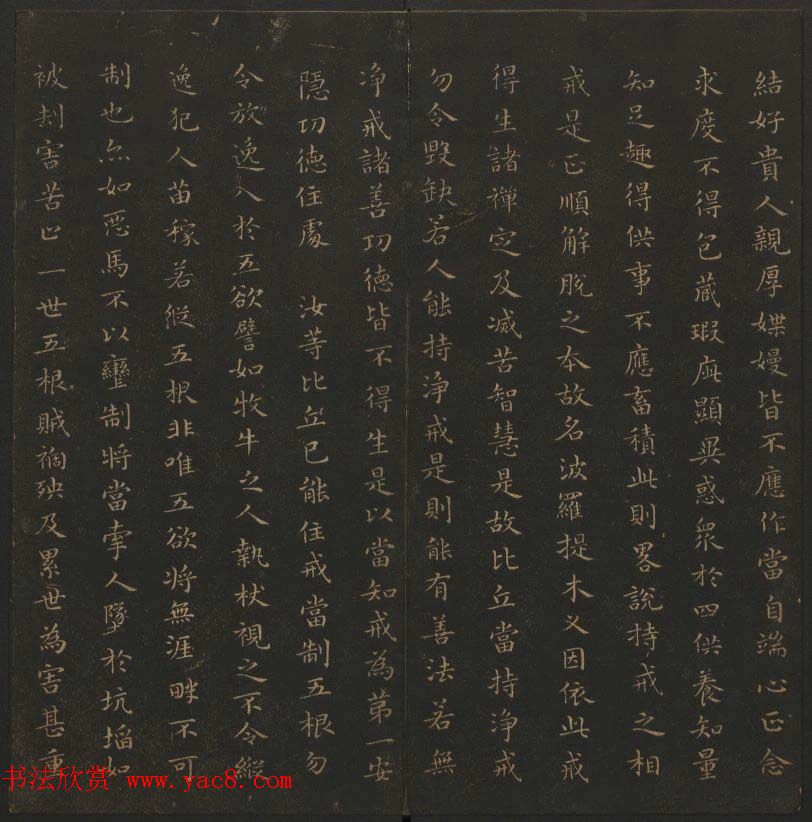 結好貴人親厚媟嫚皆不應作當自端心正念
求度不得包藏瑕疵顯異惑眾於四供養知量
知足趣得供事不應畜積此則畧說持戒之相
戒是正順解脫之本故名波羅提木叉因依此戒
得生諸禪定及滅苦智慧是故比丘當持淨戒
勿令毀缺若人能持淨戒是則能有善法若無
淨戒諸善功德皆不得生是以當知戒為第一安
隱功德住處 汝等比丘已能住戒當制五根勿
令放逸入於五欲譬如牧牛之人執杖視之不令縱
逸犯人苗稼若縱五根非唯五欲將無涯畔不可
制也亦如惡馬不以轡制將當牽人墜於坑埳如
被劫害苦止一世五根賊禍殃及累世為害甚重
书法欣赏 www.yac8.com